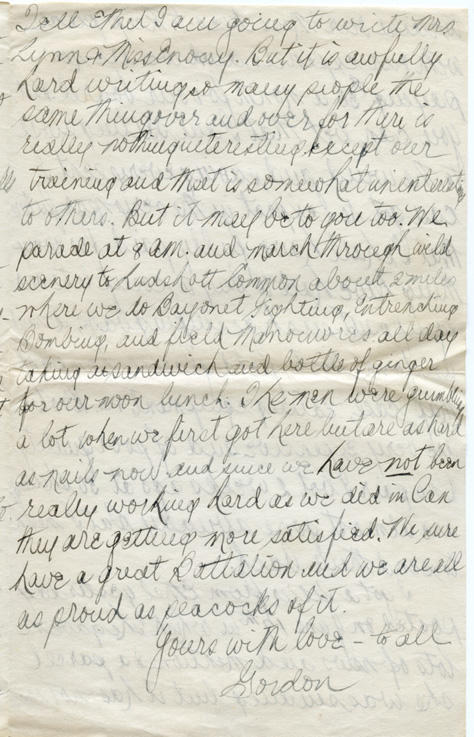 Tell Ethel I am going to write Mrs
Lynn & Miss Enoey. But it is awfully
hard writing so many people the
same thing over and over for there is
really nothing interesting except our
training and that is somewhat uninteresting
to others. But it may be to you too. We
parade at 8 am. and march through wild
scenery to Ludshott Common about 2 miles
where we do Bayonet Fighting, Entrenching
Bombing, and field Manoeuvres all day
taking a sandwich and bottle of ginger
for our noon lunch. The men were grumbling
a lot when we first got here but are as hard
as nails now and since we have not been
really working hard as we did in Can
they are getting more satisfied. We sure
have a great Battalion and we are all
as proud as peacocks of it.
Yours with love - to all
Gordon